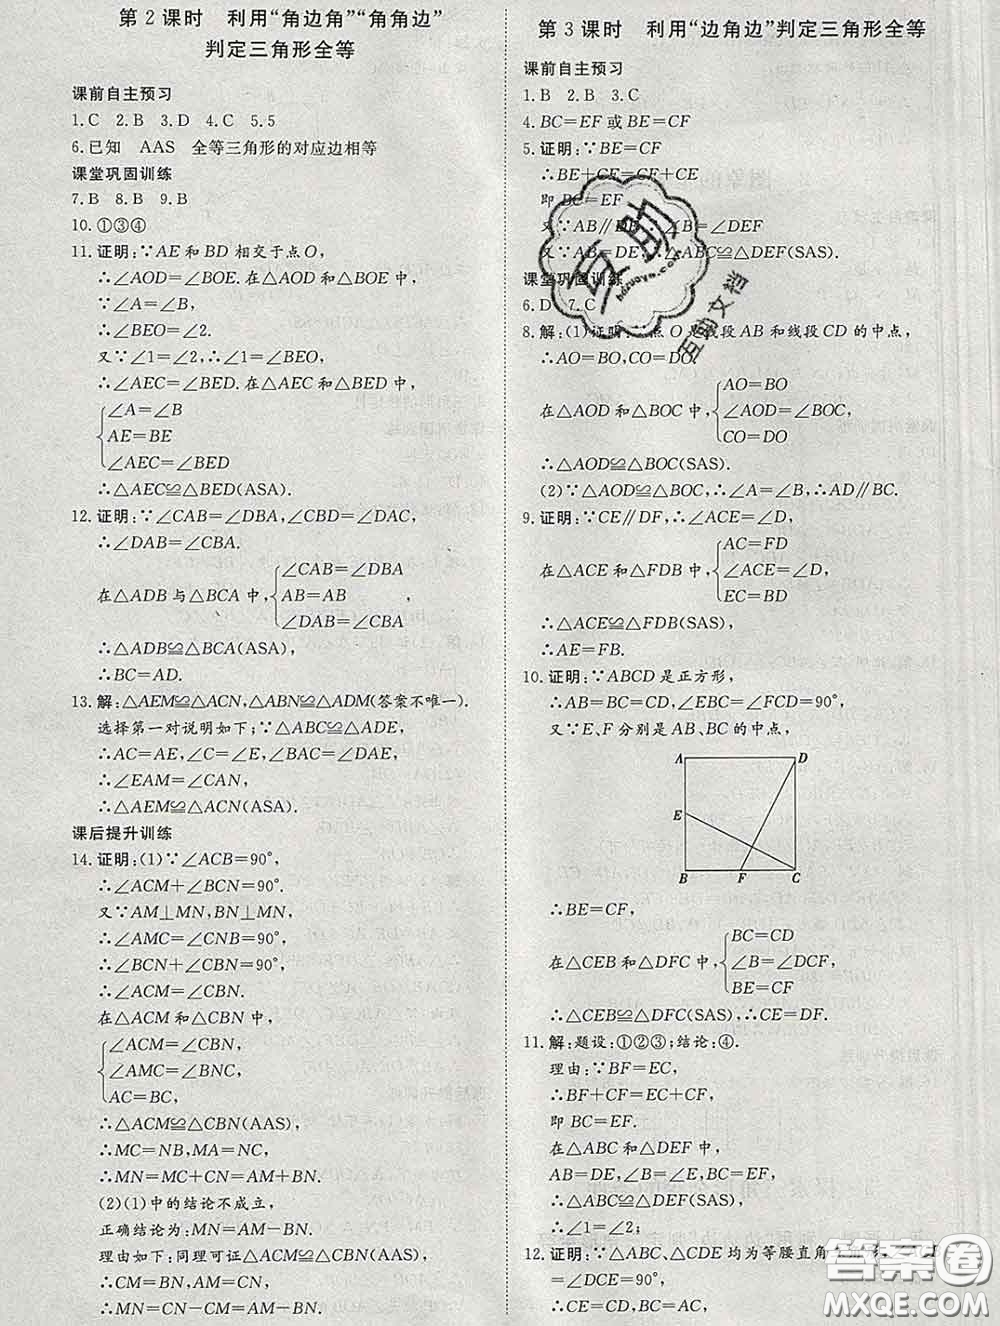 第2课时 利用“角边角”“角角边”
判定三角形全等
课前自主预习
1.C 2.B 3.D 4.C 5.5
6.已知 AAS 全等三角形的对应边相等
课堂巩固训练
7.B 8.B 9.B
10.①③④
11.证明:∵AE和BD相交于点O,
∴∠AOD=∠BOE.在△AOD和△BOE中,
∵∠A=∠B,
∴∠BEO=∠2.
又∵∠1=∠2,∴∠1=∠BEO,
∴∠AEC=∠BED.在△AEC和△BED中,
∠A=∠B
AE=BE
∠AEC=∠BED
∴△AEC≌△BED(ASA).
12.证明:∵∠CAB=∠DBA,∠CBD=∠DAC,
∴∠DAB=∠CBA.
在△ADB与△BCA中,
∠CAB=∠DBA
AB=AB
∠DAB=∠CBA
∴△ADB≌△BCA(ASA),
∴BC=AD.
13.解:△AEM≌△ACN,△ABN≌△ADM(答案不唯一).
选择第一对说明如下:∵△ABC≌△ADE,
∴AC=AE,∠C=∠E,∠BAC=∠DAE,
∴∠EAM=∠CAN,
∴△AEM≌△ACN(ASA).
课后提升训练
14.证明:(1)∵∠ACB=90°,
∴∠ACM+∠BCN=90°.
又∵AM⊥MN,BN⊥MN,
∴∠AMC=∠CNB=90°,
∴∠BCN+∠CBN=90°,
∴∠ACM=∠CBN.
在△ACM和△CBN中,
∠ACM=∠CBN,
∠AMC=∠BNC,
AC=BC,
∴△ACM≌△CBN(ASA),
∴MC=NB,MA=NC,
∴MN=MC+CN=AM+BN.
(2)(1)中的结论不成立,
正确结论为:MN=AM-BN.
理由如下:同理可证△ACM≌△CBN(AAS),
∴CM=BN,AM=CN,
∴MN=CN-CM=AM-BN.
第3课时 利用“边角边”判定三角形全等
课前自主预习
1.B 2.B 3.C
4.BC=EF或BE=CF
5.证明:∵BE=CF
∴BE+CE=CF+CE
即BC=EF
又∵AB∥DE,∴∠B=∠DEF
又∵AB=DE,∴△ABC≌△DEF(SAS).
课堂巩固训练
6.D 7.C
8.解:(1)证明:∵点O是线段AB和线段CD的中点,
∴AO=BO,CO=DO.
在△AOD和△BOC中,
AO=BO
∠AOD=∠BOC,
CO=DO
∴△AOD≌△BOC(SAS).
(2)∵△AOD≌△BOC,∴AD∥BC.
9.证明:∵CE∥DF,∴∠ACE=∠D,
在△ACE和△FDB中,
AC=FD
∠ACE=∠D,
EC=BD
∴△ACE≌△FDB(SAS),
∴AE=FB.
10.证明:∵ABCD是正方形,
∴AB=BC=CD,∠EBC=∠FCD=90°,
又∵E、F分别是AB、BC的中点,
A D
E
B F C
∴BE=CF,
在△CEB和△DFC中,
BC=CD
∠B=∠DCF,
BE=CF
∴△CEB≌△DFC(SAS),∴CE=DF.
11.解:题设:①②③;结论:④.
理由:∵BF=EC,
∴BF+CF=EC+CF,
即BC=EF.
在△ABC和△DEF中,
AB=DE,∠B=∠E,BC=EF,
∴△ABC≌△DEF(SAS),
∴∠1=∠2;
12.证明:∵△ABC、△CDE均为等腰直角
=∠DCE=90°,
∴CE=CD,BC=AC,
互助
hdzuoye.com
互助文档
答案圈
MXQE.COM